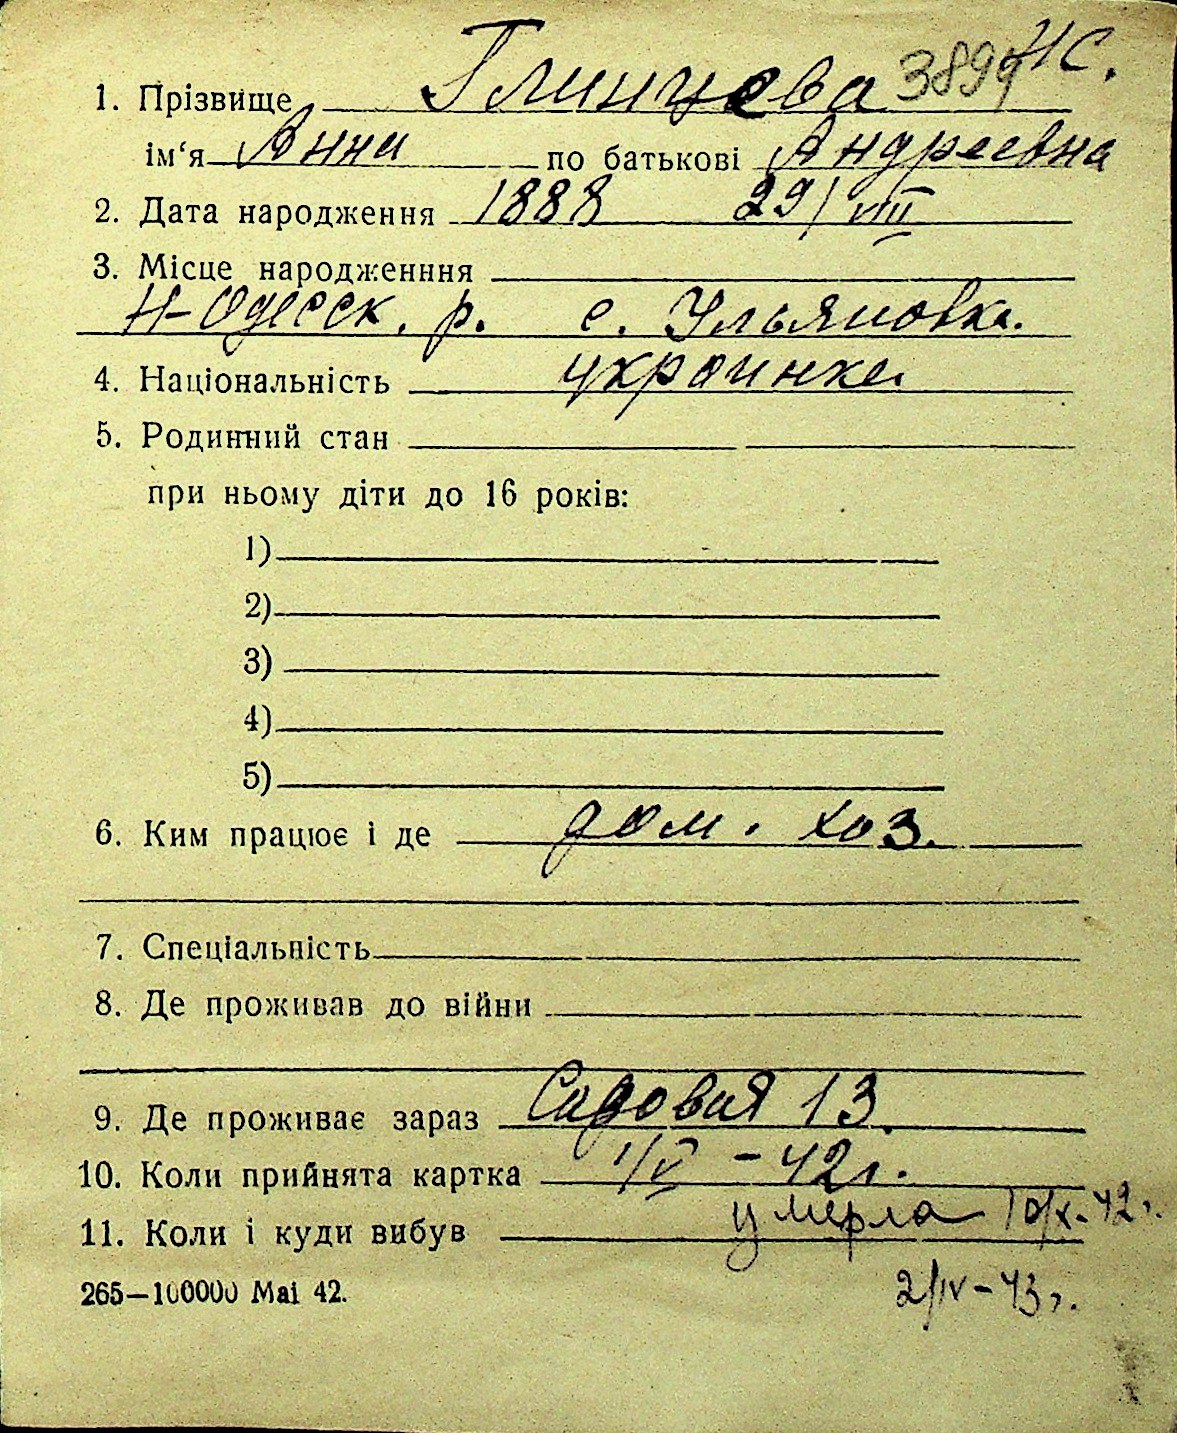 1. Прізвище Глинцева 3899 НС.
ім‘я Анна по батькові Андреевна
2. Дата народження 1888 29/VIII
3. Місце народженння
Н-Одесск. р. с. Ульяновка.
4. Національність украинка
5. Родинний стан
при ньому діти до 16 років:
1)
2)
3)
4)
5)
6. Ким працює і де дом. хоз.
7. Спеціальність
8. Де проживав до війни
9. Де проживає зараз Садовая 13.
10. Коли прийнята картка 1/V - 42г.
11. Коли і куди вибув умерла 10/X-42г.
265—100000 Маі 42. 2/IV-43г.